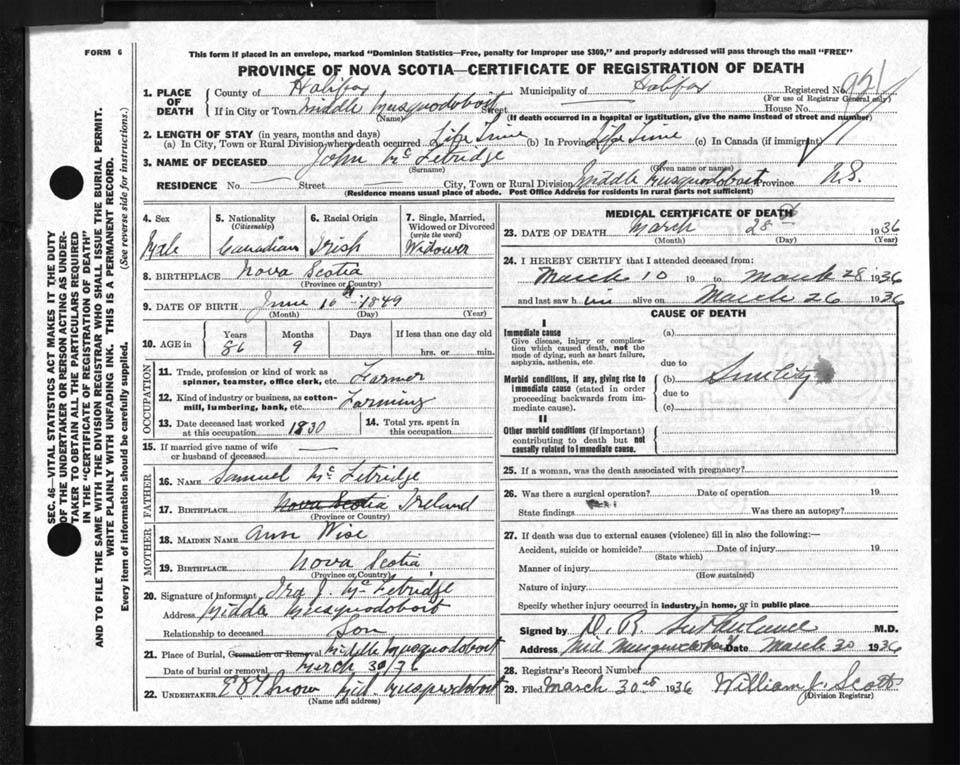 FORM 6
This form if placed in an envelope, marked "Dominion Statistics—Free, penalty for improper use $300," and properly addressed will pass through the mail "FREE"
PROVINCE OF NOVA SCOTIA—CERTIFICATE OF REGISTRATION OF DEATH
1. PLACE OF DEATH
County of Halifax Municipality of Halifax Registered No.
(For use of Registrar General only)
If in City or Town Middle Musquodoboit Street House No.
(Name) (If death occurred in a hospital or institution, give the name instead of street and number)
2. LENGTH OF STAY (in years, months and days)
(a) In City, Town or Rural Division where death occurred Life Time (b) In Province Life Time (c) In Canada (if immigrant)
3. NAME OF DECEASED John McFetridge
(Surname) (Given name or names)
RESIDENCE No. Street City, Town or Rural Division Middle Musquodoboit Province N.S.
(Residence means usual place of abode. Post Office Address for residents in rural parts not sufficient)
4. Sex Male
5. Nationality (Citizenship) Canadian
6. Racial Origin Irish
7. Single, Married, Widowed or Divorced (write the word) Widower
8. BIRTHPLACE Nova Scotia
(Province or Country)
9. DATE OF BIRTH June 10 1849
(Month) (Day) (Year)
10. AGE in Years 86 Months 9 Days If less than one day old hrs. or min.
OCCUPATION
11. Trade, profession or kind of work as spinner, teamster, office clerk, etc. Farmer
12. Kind of industry or business, as cotton-mill, lumbering, bank, etc. Farming
13. Date deceased last worked at this occupation 1930
14. Total yrs. spent in this occupation
15. If married give name of wife or husband of deceased
FATHER
16. NAME Samuel McFetridge
17. BIRTHPLACE Nova Scotia Ireland
(Province or Country)
MOTHER
18. MAIDEN NAME Ann Wise
19. BIRTHPLACE Nova Scotia
(Province or Country)
20. Signature of informant Ira J. McFetridge
Address Middle Musquodoboit
Relationship to deceased Son
21. Place of Burial, Cremation or Removal Middle Musquodoboit
Date of burial or removal March 30/36
22. UNDERTAKER Snow Mid. Musquodoboit
(Name and address)
MEDICAL CERTIFICATE OF DEATH
23. DATE OF DEATH March 28 1936
(Month) (Day) (Year)
24. I HEREBY CERTIFY that I attended deceased from:
March 10 19 to March 28 1936
and last saw him alive on March 26 1936
CAUSE OF DEATH
I
Immediate cause
Give disease, injury or complication which caused death, not the mode of dying, such as heart failure, asphyxia, asthenia, etc.
(a)
due to
Morbid conditions, if any, giving rise to immediate cause (stated in order proceeding backwards from immediate cause).
(b) Senility
due to
(c)
II
Other morbid conditions (if important) contributing to death but not causally related to immediate cause.
25. If a woman, was the death associated with pregnancy?
26. Was there a surgical operation? Date of operation 19
State findings Was there an autopsy?
27. If death was due to external causes (violence) fill in also the following:—
Accident, suicide or homicide? Date of injury 19
(State which)
Manner of injury
(How sustained)
Nature of injury
Specify whether injury occurred in industry, in home, or in public place
Signed by D. R. Sutherland M.D.
Address Mid Musquodoboit Date March 30 1936
28. Registrar's Record Number
29. Filed March 30th 1936 William J. Scott
(Division Registrar)
SEC. 46—VITAL STATISTICS ACT MAKES IT THE DUTY
OF THE UNDERTAKER OR PERSON ACTING AS UNDER-
TAKER TO OBTAIN ALL THE PARTICULARS REQUIRED
IN THE "CERTIFICATE OF REGISTRATION OF DEATH"
AND TO FILE THE SAME WITH THE DIVISION REGISTRAR WHO SHALL ISSUE THE BURIAL PERMIT.
WRITE PLAINLY WITH UNFADING INK. THIS IS A PERMANENT RECORD.
Every item of information should be carefully supplied. (See reverse side for instructions.)